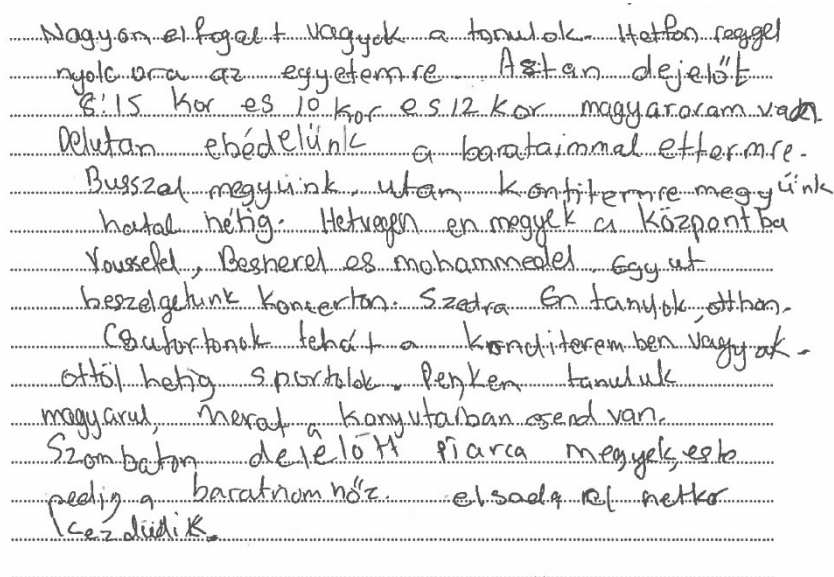 Nagyon elfogalt vagyok a tonulok. Hetfon reggel
nyolc ora az egyetemre. Aztan dejelőt
8:15 kor es 10 kor es 12 kor magyaroram van.
Delutan ebédelünk a barataimmal ettermre.
Busszal megyünk, utan kontitermre megyünk
hatal hétig. Hetvegen en megyek a központba
Youssefel, Besherel es mohammedel. Egyut
beszelgetunk koncerton. Szedra én tanyok otthon.
Csutortonok tehát a konditeremben vagyok.
ottől hetig sportolok. Penken tanuluk
magyarul, merat a konyvtarban csend van.
Szombaton dejelőtt piarca megyek, este
pedig a baratnomhőz. elsada netkor
kezdüdik.